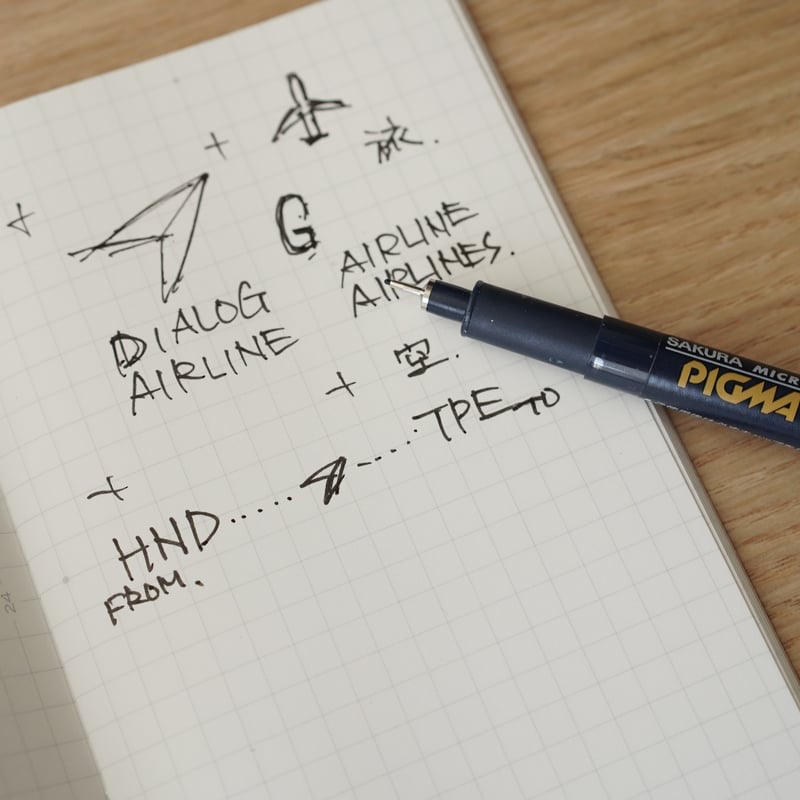 旅.
G
AIRLINE
AIRLINES.
DIALOG
AIRLINE
空.
TPE TO
HND
FROM.
SAKURA MICR
PIGMA
24